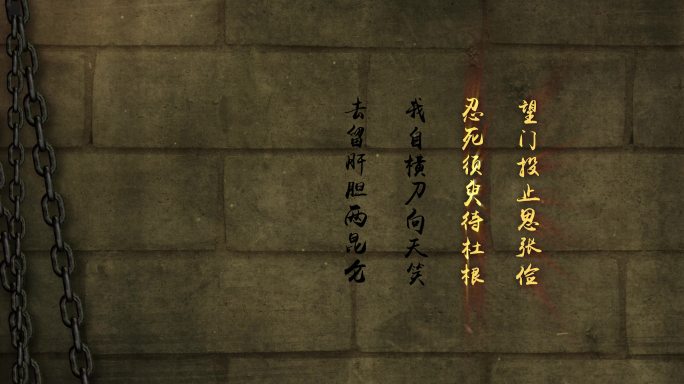 望门投止思张俭
忍死须臾待杜根
我自横刀向天笑
去留肝胆两昆仑